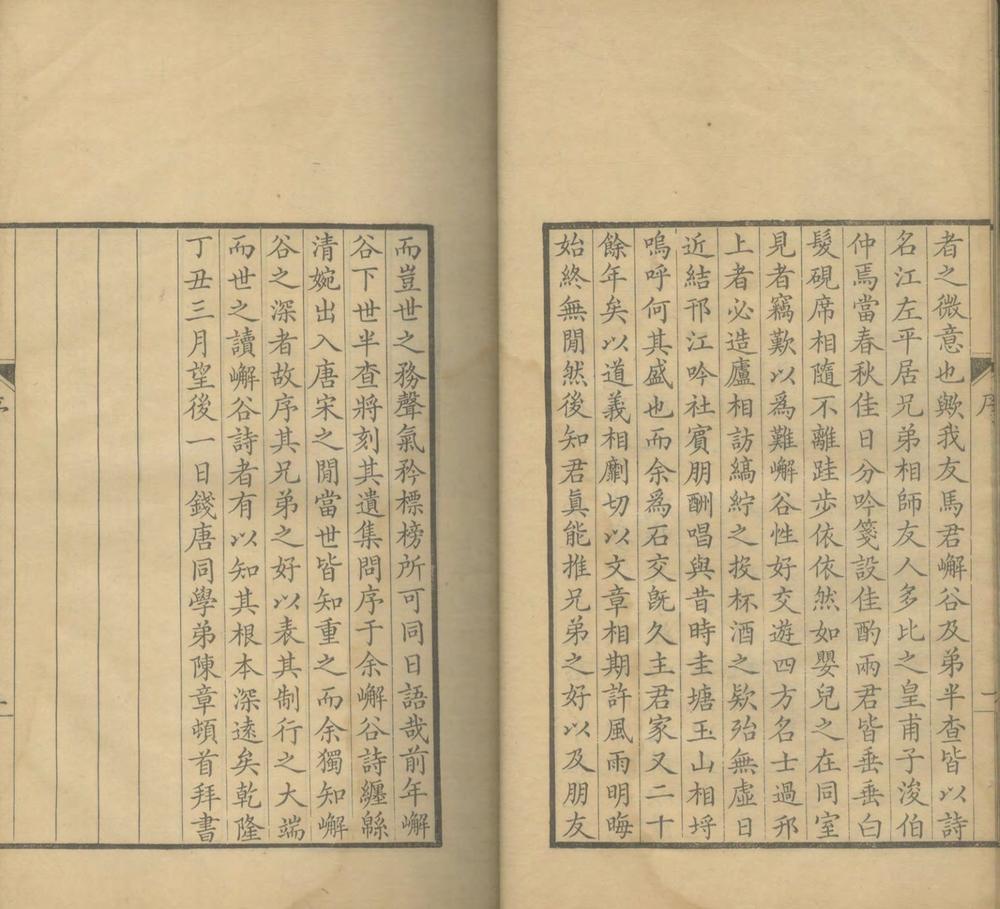 序
者之微意也歟我友馬君嶰谷及弟半查皆以詩
名江左平居兄弟相師友人多比之皇甫子浚伯
仲焉當春秋佳日分吟箋設佳酌兩君皆垂垂白
髮硯席相隨不離跬步依依然如嬰兒之在同室
見者竊歎以爲難嶰谷性好交遊四方名士過邗
上者必造廬相訪縞紵之投杯酒之欵殆無虛日
近結邗江吟社賓朋酬唱與昔時圭塘玉山相埒
嗚呼何其盛也而余爲石交旣久主君家又二十
餘年矣以道義相劘切以文章相期許風雨明晦
始終無閒然後知君眞能推兄弟之好以及朋友
而豈世之務聲氣矜標榜所可同日語哉前年嶰
谷下世半查將刻其遺集問序于余嶰谷詩纏緜
清婉出入唐宋之閒當世皆知重之而余獨知嶰
谷之深者故序其兄弟之好以表其制行之大端
而世之讀嶰谷詩者有以知其根本深遠矣乾隆
丁丑三月望後一日錢唐同學弟陳章頓首拜書